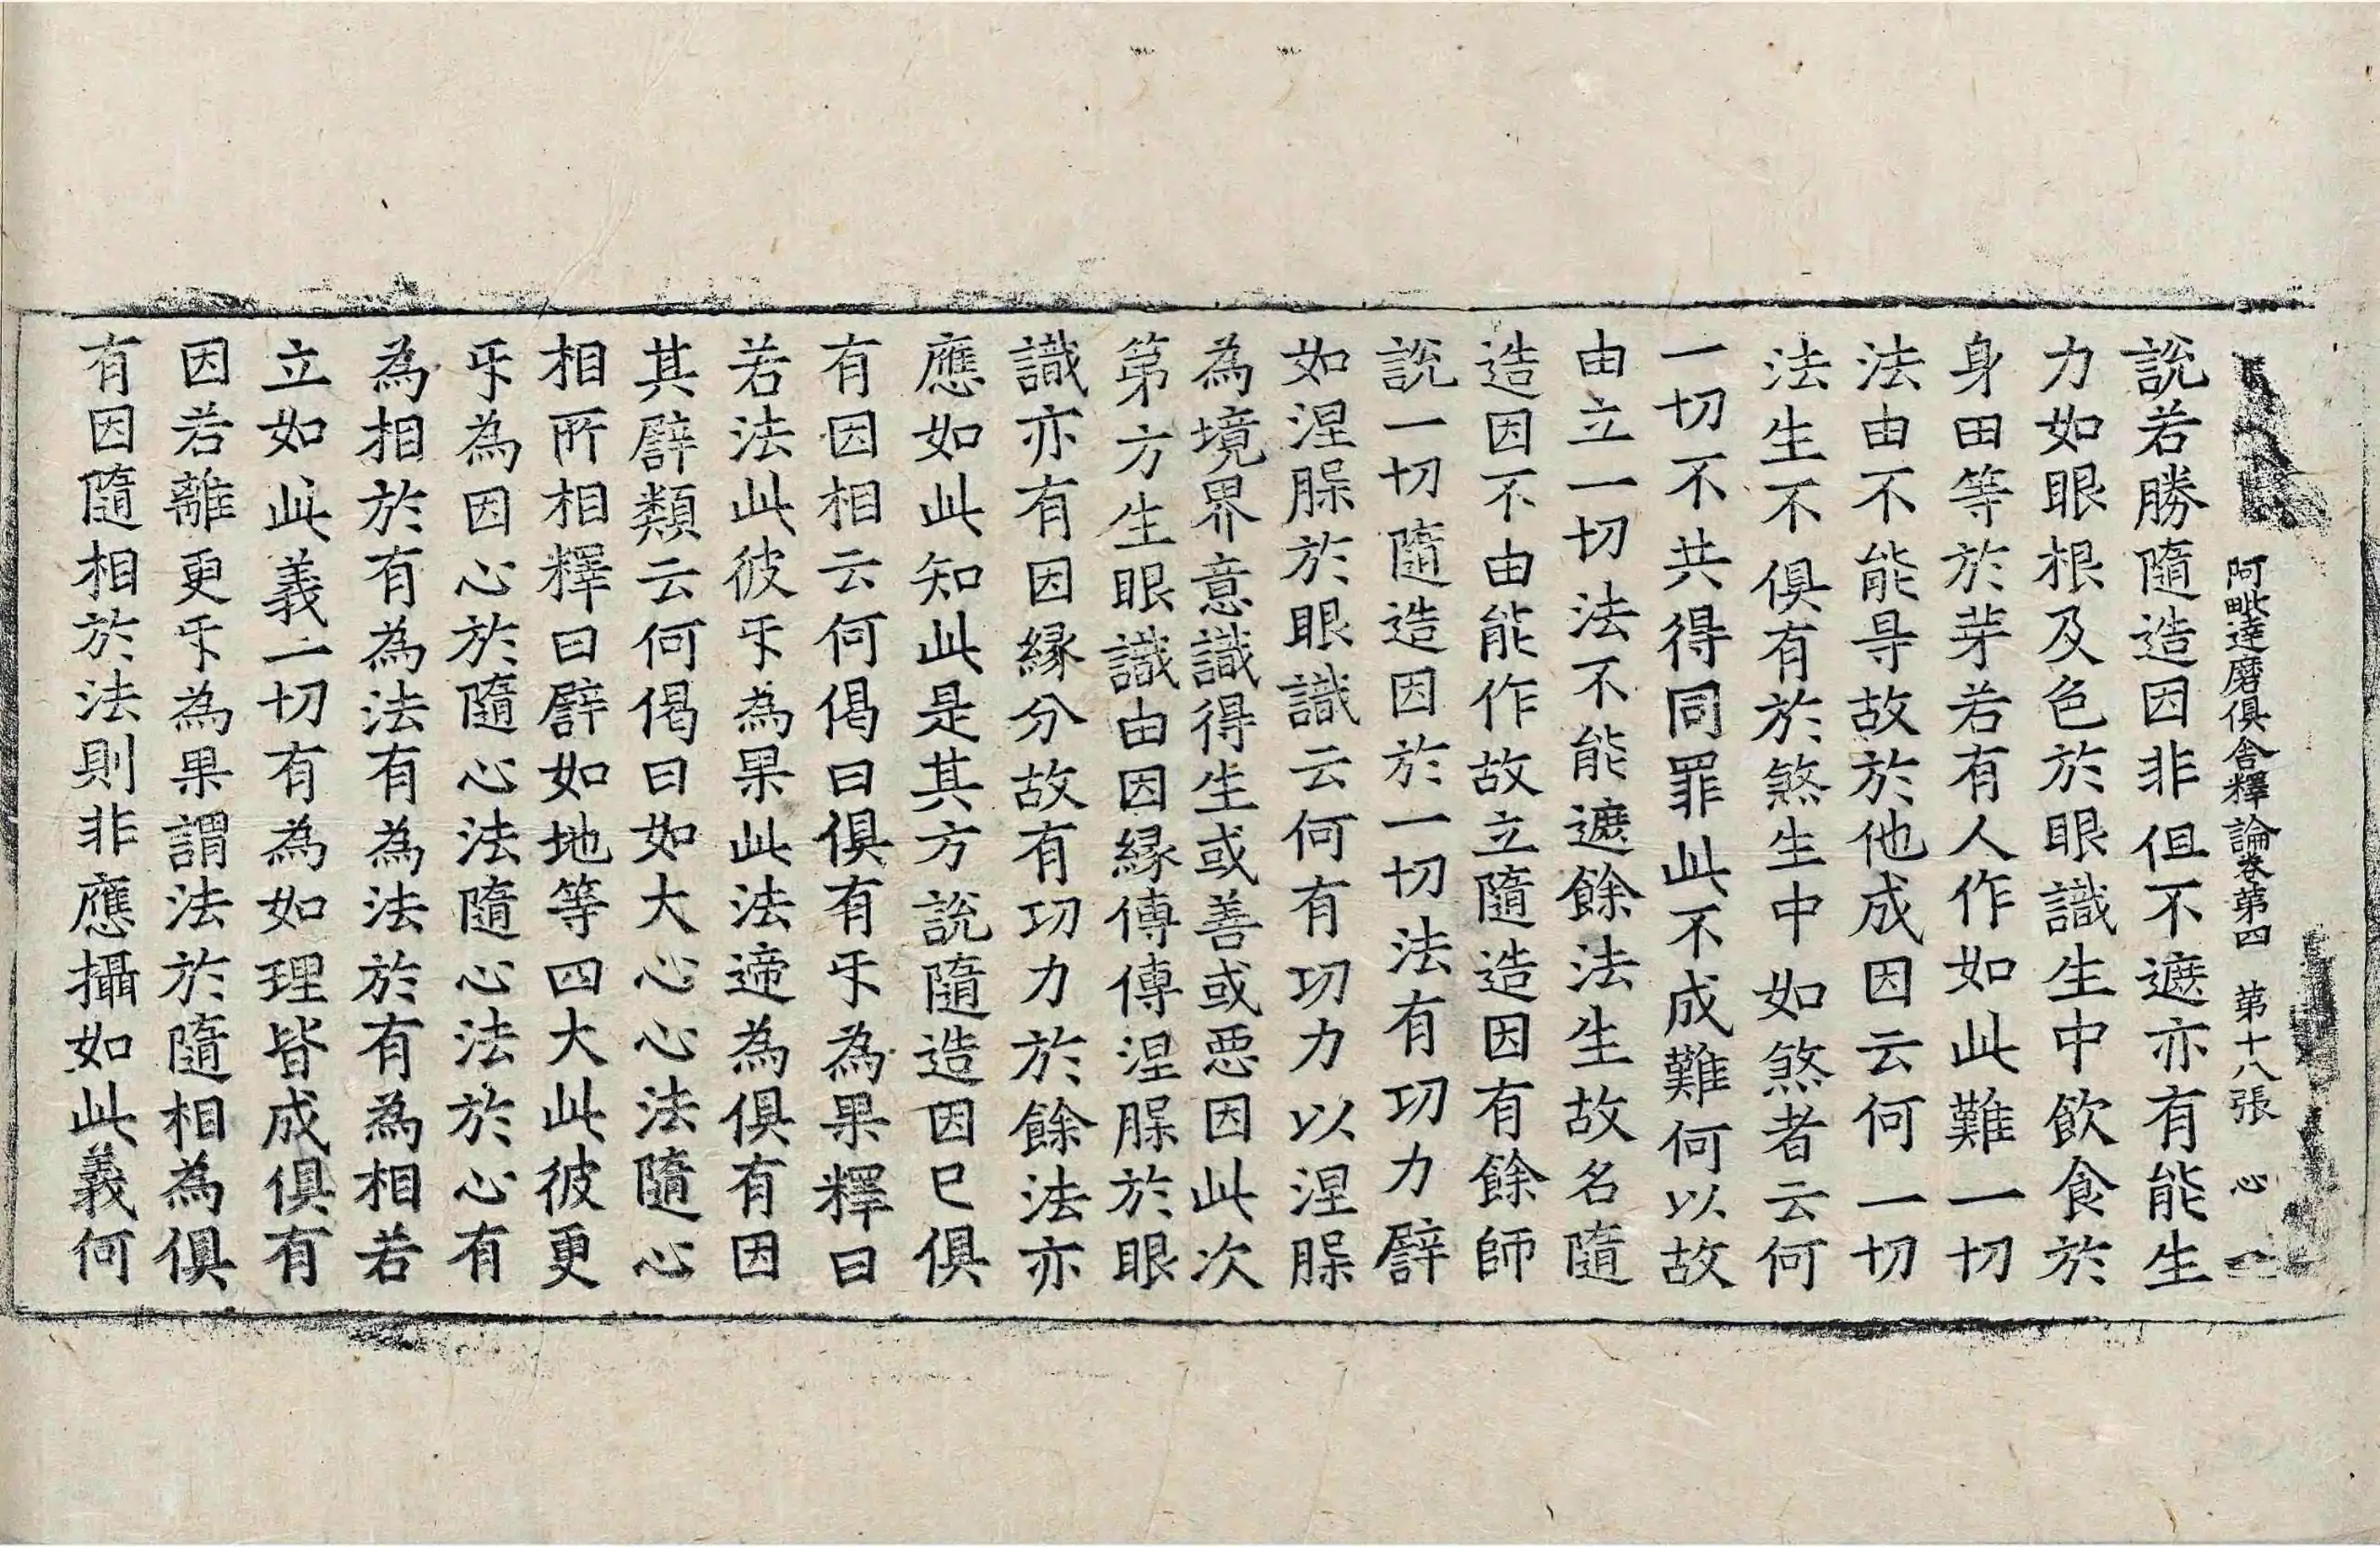 阿毗達磨俱舍釋論卷第四 第十八張 心
說若勝隨造因非但不遮亦有能生
力如眼根及色於眼識生中飲食於
身田等於芽若有人作如此難一切
法由不能㝵故於他成因云何一切
法生不俱有於煞生中如煞者云何
一切不共得同罪此不成難何以故
由立一切法不能遮餘法生故名隨
造因不由能作故立隨造因有餘師
說一切隨造因於一切法有功力譬
如涅槃於眼識云何有功力以涅槃
為境界意識得生或善或惡因此次
第方生眼識由因緣傳傳涅槃於眼
識亦有因緣分故有功力於餘法亦
應如此知此是其方說隨造因已俱
有因相云何偈曰俱有㸦為果釋曰
若法此彼㸦為果此法遆為俱有因
其譬類云何偈曰如大心心法隨心
相所相釋曰譬如地等四大此彼更
㸦為因心於隨心法隨心法於心有
為相於有為法有為法於有為相若
立如此義一切有為如理皆成俱有
因若離更㸦為果謂法於隨相為俱
有因隨相於法則非應攝如此義何